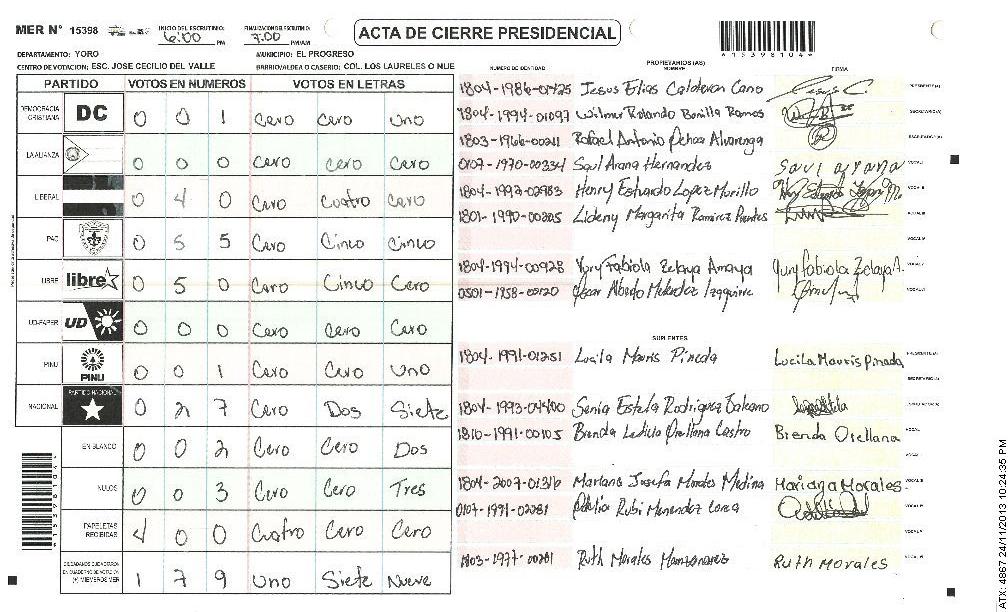 MER Nº 15398
INICIO DEL ESCRUTINIO: 6:00 PM
FINALIZACION DEL ESCRUTINIO: 7:00 PM/AM
ACTA DE CIERRE PRESIDENCIAL
DEPARTAMENTO: YORO
MUNICIPIO: EL PROGRESO
CENTRO DE VOTACION: ESC. JOSE CECILIO DEL VALLE
BARRIO/ALDEA O CASERIO: COL. LOS LAURELES O NUE
PARTIDO VOTOS EN NUMEROS VOTOS EN LETRAS
DEMOCRACIA CRISTIANA DC 0 0 1 Cero Cero Uno
LA ALIANZA 0 0 0 Cero Cero Cero
LIBERAL 0 4 0 Cero Cuatro Cero
PAC 0 5 5 Cero Cinco Cinco
LIBRE libre 0 5 0 Cero Cinco Cero
UD-FAPER UD 0 0 0 Cero Cero Cero
PINU PINU 0 0 1 Cero Cero Uno
NACIONAL PARTIDO NACIONAL 0 2 7 Cero Dos Siete
EN BLANCO 0 0 2 Cero Cero Dos
NULOS 0 0 3 Cero Cero Tres
PAPELETAS RECIBIDAS 4 0 0 Cuatro Cero Cero
(+) MIEMBROS MER 1 7 9 Uno Siete Nueve
NUMERO DE IDENTIDAD PROPIETARIOS (AS) NOMBRE FIRMA
1804-1986-01425 Jesus Elias Calderon Cano PRESIDENTE(A)
1804-1994-01097 Wilmer Rolando Bonilla Ramos SECRETARIO(A)
1803-1966-00211 Rafael Antonio Ochoa Alvarenga ESCRUTADOR(A)
0107-1970-00334 Saul Arana Hernandez Saul arana VOCAL I
1804-1992-02983 Henry Estuardo Lopez Murillo VOCAL II
1801-1990-00205 Lideny Margarita Ramirez VOCAL III
VOCAL IV
1804-1994-00928 Yury Fabiola Zelaya Amaya Yury fabiola Zelaya A. VOCAL V
0501-1958-00120 Oscar Alberto Melendez Izaguirre
SUPLENTES
1804-1991-01251 Lucila Mauris Pineda Lucila Mauris Pineda PRESIDENTE(A)
SECRETARIO(A)
1804-1993-04400 Senia Estela Rodriguez
1810-1991-00105 Brenda Leticia Orellana Castro Brenda Orellana VOCAL I
1804-2007-01316 Mariana Josefa Morales Medina Mariana Morales
0107-1991-02281 Rubi Menendez
1803-1977-00201 Ruth Morales Manzanares Ruth Morales
*15398104*
ATX: 4867 24/11/2013 10:24:35 PM